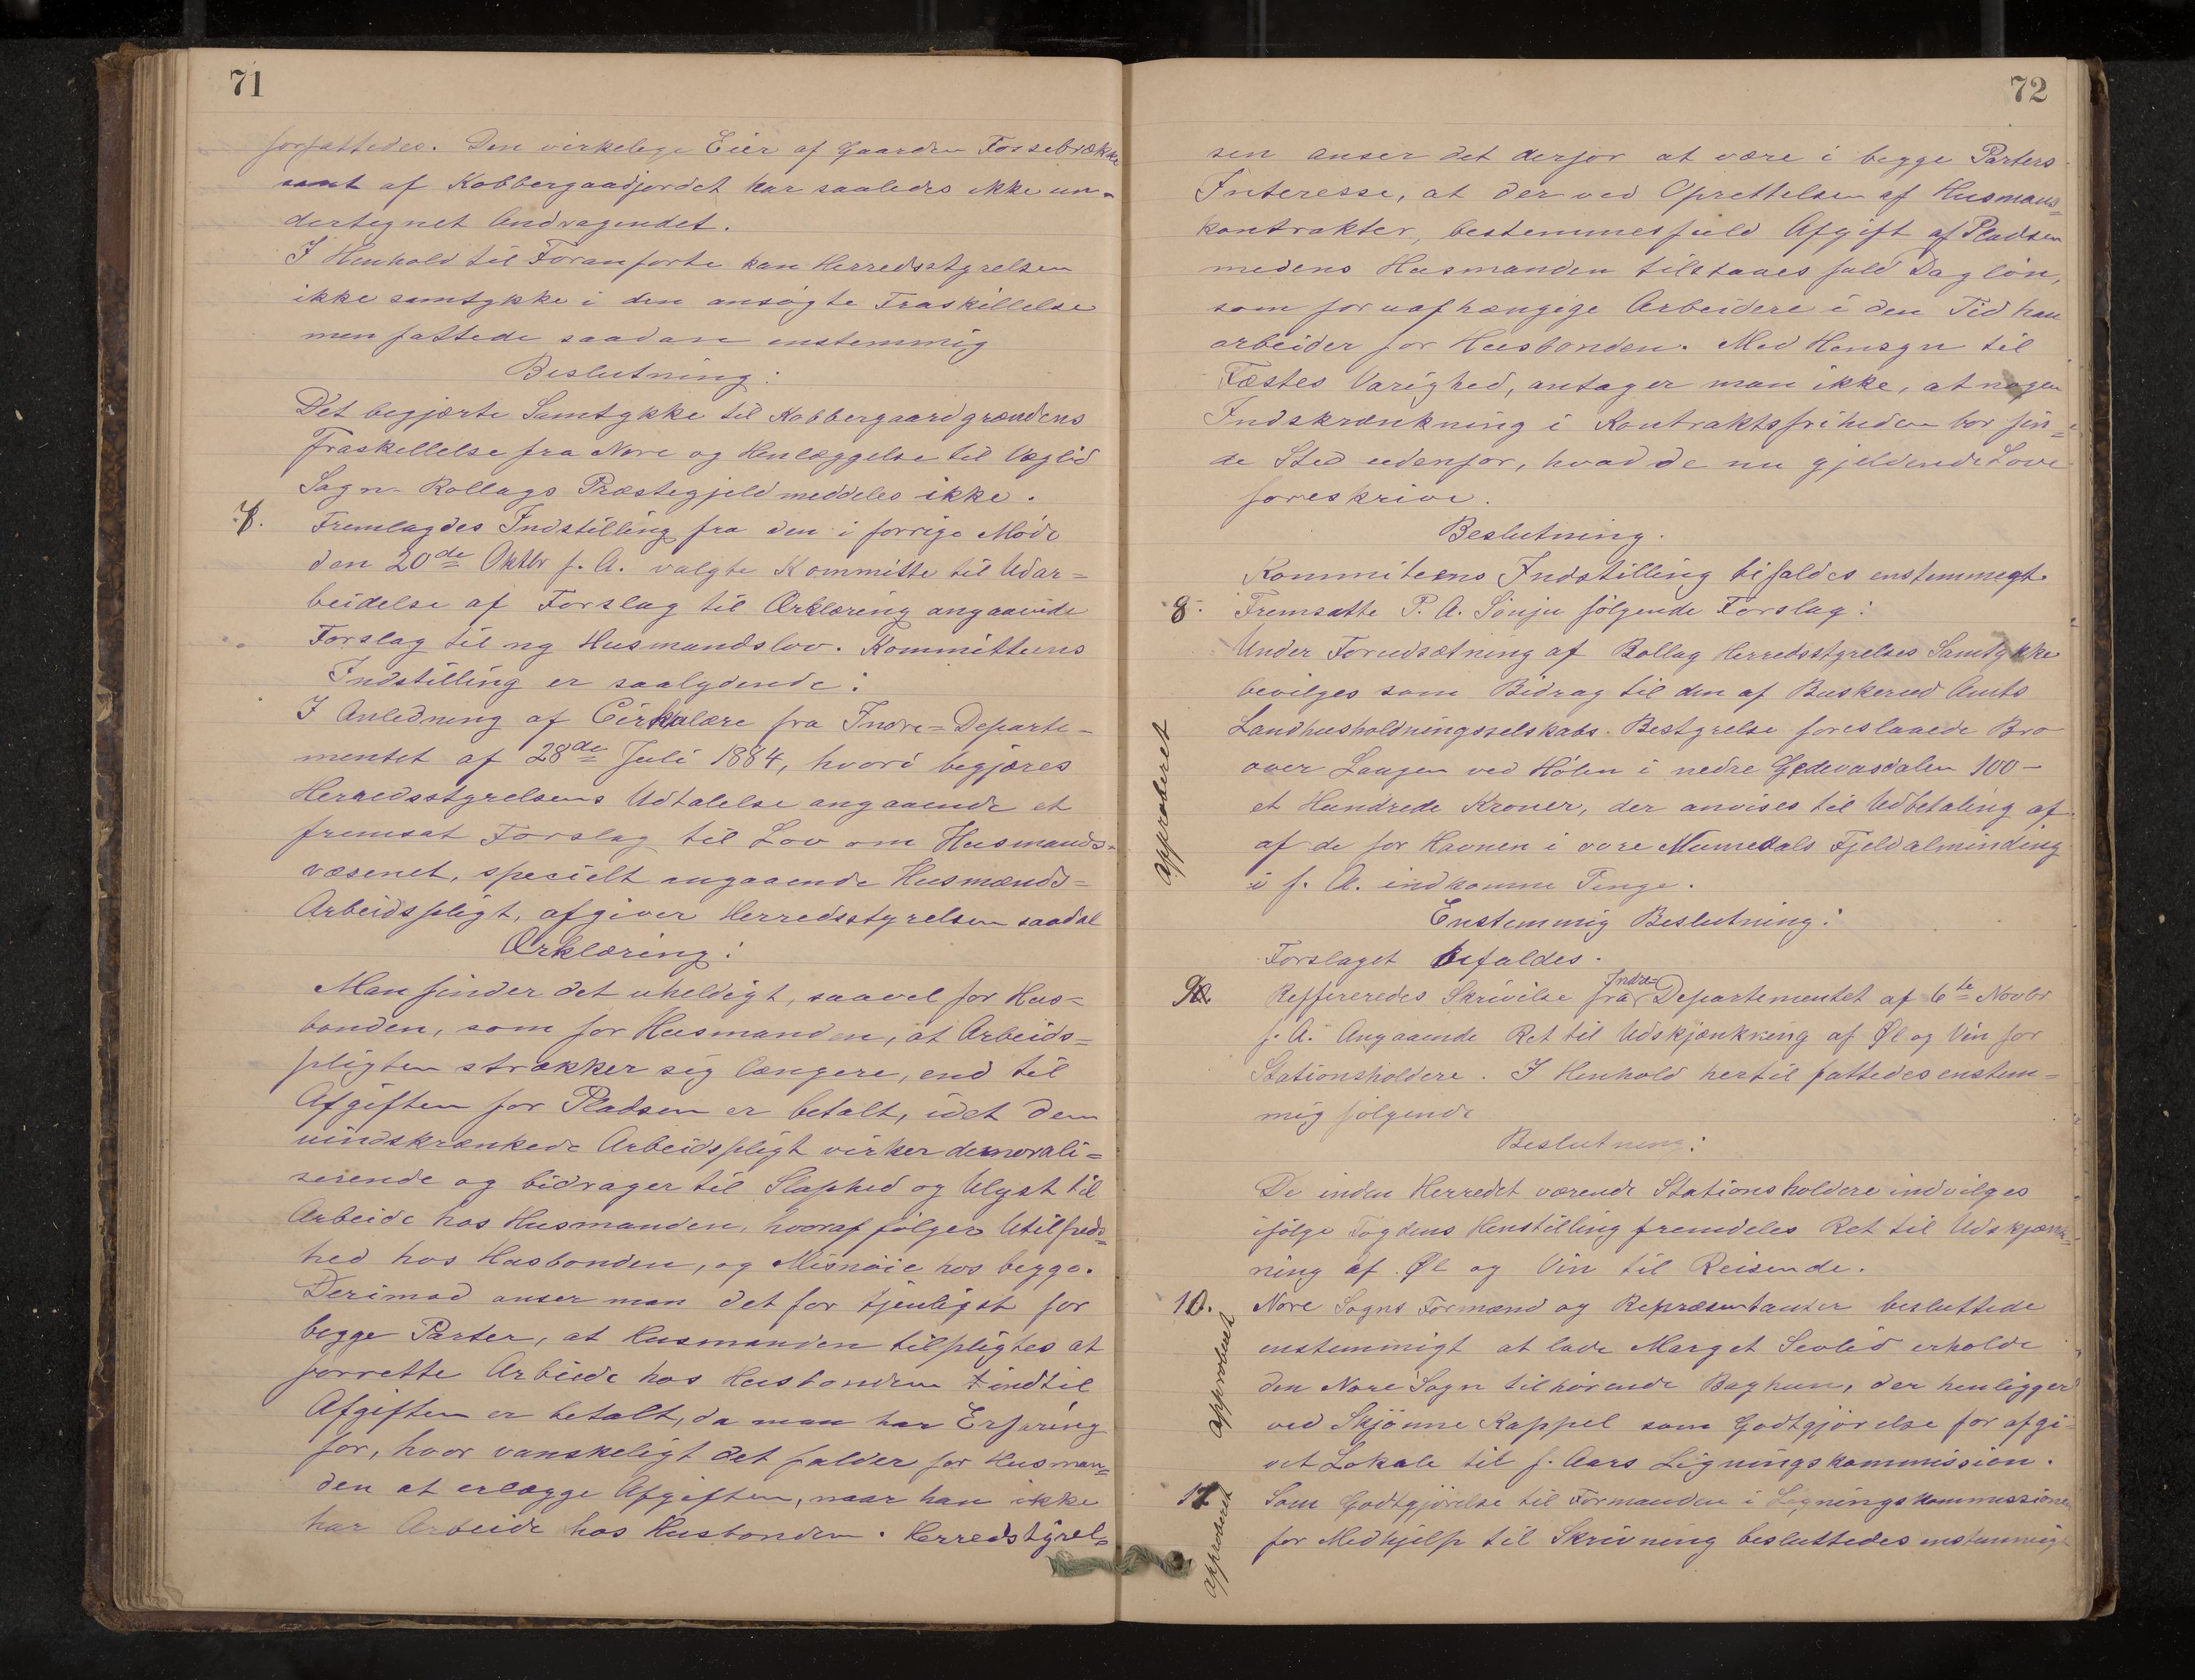 71
forfattedes. Den virkelege Eier af Gaarden Forsebrække
samt af Kobbergaardjordet har saaledes ikke un-
dertegnet Andragendet.
I Henhold til Foranførte kan Herredsstyrelsen
ikke samtykke i den ansøgte Fraskillelse
men fattede saadan enstemmig
Beslutning:
Det begjærte Samtykke til Kobbergaardgrændens
Fraskillelse fra Nore og Henlæggelse til Væglid
Sogn - Rollags Præstegjeld meddeles ikke.
7. Fremlagdes Indstilling fra den i forrige Møde
den 20de Oktbr f. A. valgte Kommitte til Udar=
beidelse af Forslag til Ærklæring angaaende
Forslag til ny Husmandslov. Kommitteens
Indstilling er saalydende:
I Anledning af Cirkulære fra Indre=Departe-
mentet af 28de Juli 1884, hvori begjæres
Herredsstyrelsens Udtalelse angaaende et
fremsat Forslag til Lov om Husmands=
væsenet, specielt angaaende Husmænds=
Arbeidspligt, afgiver Herredsstyrelsen saadal
Ærklæring:
Man finder det uheldigt, saavel for Hus=
bonden, som for Husmanden, at Arbeids=
pligten strækker sig længere, end til
Afgiften for Pladsen er betalt, idet den
uindskrænkede Arbeidspligt virker demorali=
serende og bidrager til Slaphed og Ulyst til
Arbeide hos Husmanden, hvoraf følger Utilfreds=
hed hos Husbonden, og Misnøie hos begge.
Derimod anser man det for tjenligst for
begge Parter, at Husmanden tilpligtes at
forrette Arbeide hos Husbonden indtil
Afgiften er betalt, da man har Erfaring
for, hvor vanskeligt det falder for Husman=
den at erlægge Afgiften, naar han ikke
har Arbeide hos Husbonden. Herredstyrel=
72
sen anser det derfor at være i begge Parters
Interesse, at der ved Oprettelsen af Husmans=
kontrakter, bestemmes fuld Afgift af Pladsen
medens Husmanden tilstaaes fuld Dagløn,
som for uafhængige Arbeidere i den Tid han
arbeider for Husbonden. Med Hensyn til
Fæstes Varighed, antager man ikke, at nogen
Indskrænkning i Kontraktsfriheden bør fin=
de Sted udenfor, hvad de nu gjeldende Love
foreskrive.
Beslutning.
Kommiteens Indstilling bifaldes enstemmegt.
8. Fremsatte P. A. Sønju følgende Forslag:
Under Forudsætning af Rollag Herredsstyrelses Samtykke
bevilges som Bidrag til den af Buskerud Amts
Landhusholdningsselskabs Bestyrelse foreslaaede Bro
over Laagen ved Hølen i nedre Gjedevasdalen 100 -
et Hundrede Kroner, der anvises til Udbetaling af
af de for Havnen i øvre Numedals Fjeldalminding
i f. A. indkomne Penge.
approberet
Enstemmig Beslutning:
Forslaget bifaldes.
9. Reffereredes Skrivelse fra Indre- Departementet af 6te Novbr
f. A. Angaaende Ret til Udskjænkning af Øl og Vin for
Stationsholdere. I Henhold hertil fattedes enstem=
mig følgende
Beslutning:
De inden Herredet værende Stationsholdere indvilges
ifølge Fogdens Henstilling fremdeles Ret til Udskjænk=
ning af Øl og Vin til Reisende.
10. Nore Sogns Formænd og Repræsentanter besluttede
enstemmigt at lade Marget Sevlid erholde
den Nore Sogn tilhørende Baghun, der henligger
ved Skjønne Kappel som Godtgjørelse for afgi=
vet Lokale til f. Aars Ligningskommission.
approberet
11. Som Godtgjørelse til Formanden i Ligningskommissionen
for Medhjelp til Skrivning besluttedes enstemmigt
approberet